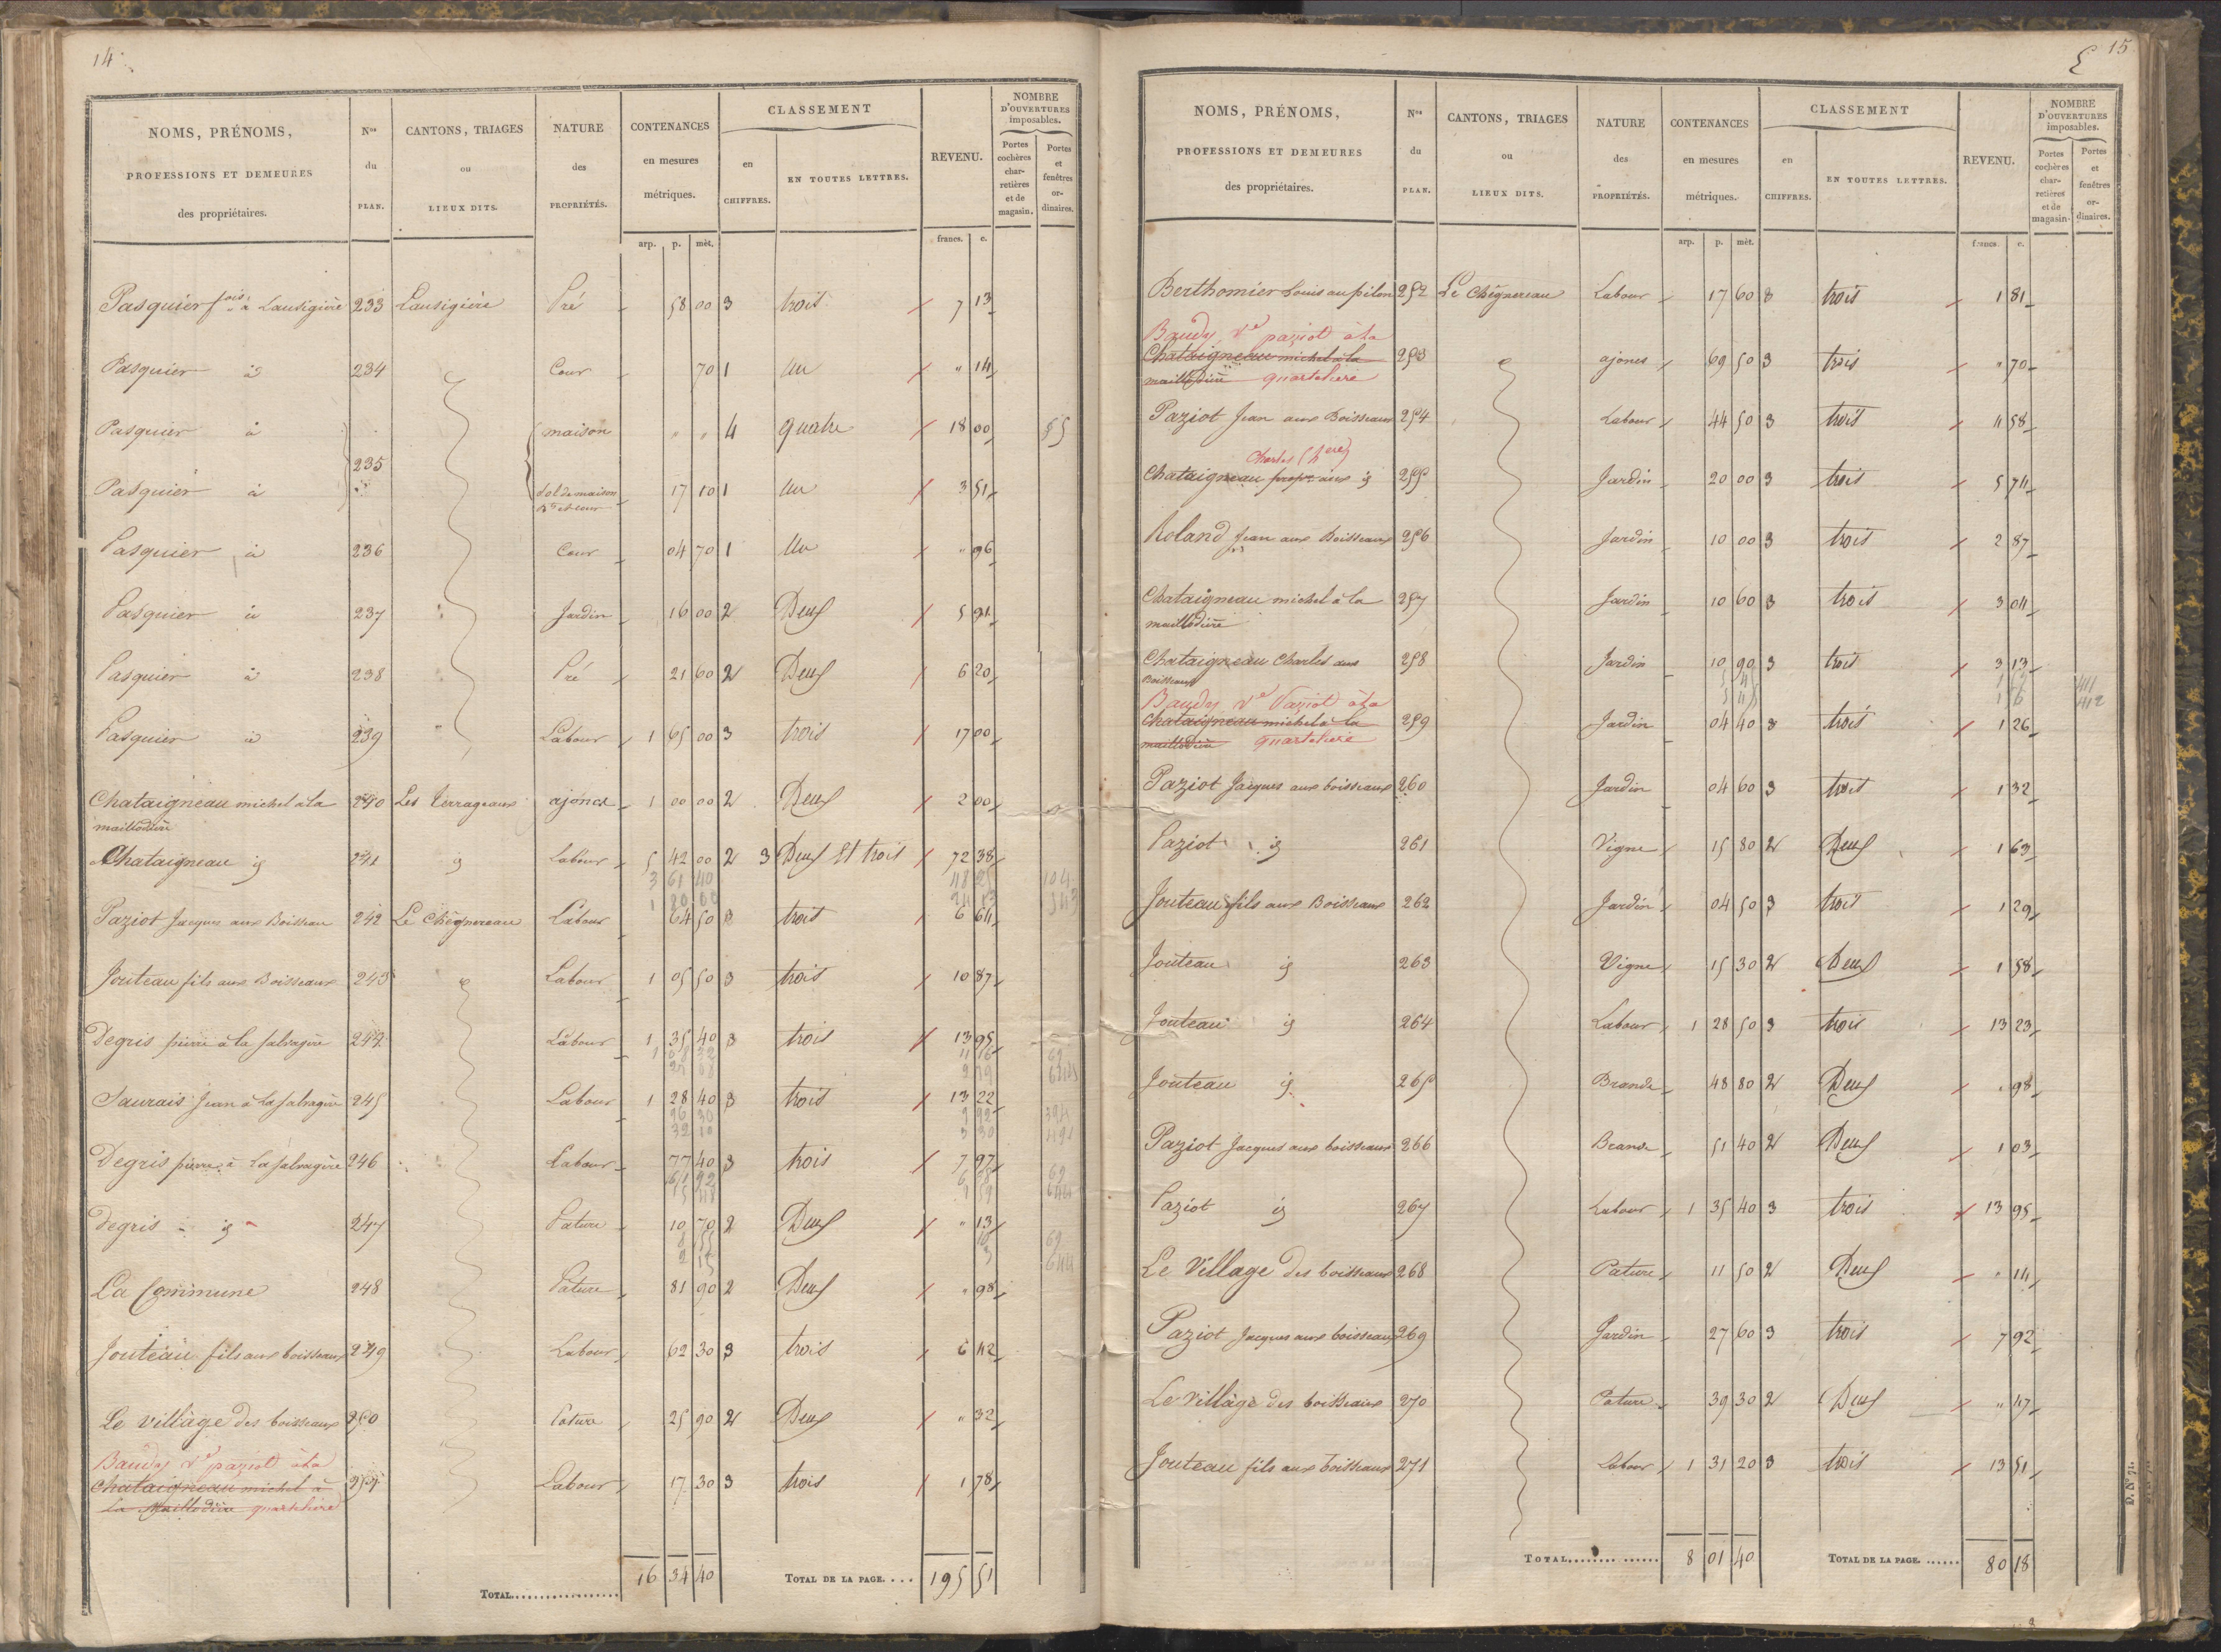 14
NOMS, PRÉNOMS, PROFESSIONS ET DEMEURES des propriétaires. Nos du PLAN. CANTONS, TRIAGES ou LIEUX DITS. NATURE des PROPRIÉTÉS. CONTENANCES en mesures métriques. CLASSEMENT en CHIFFRES. EN TOUTES LETTRES. REVENU. NOMBRE D'OUVERTURES imposables. Portes cochères charretières et de magasin. Portes et fenêtres ordinaires.
arp. p. mèt. francs. c.
Pasquier fois à Lausigière 233 Lausigière Pré 58 00 3 trois 7 13
Pasquier à 234 Cour 70 1 Un " 14
Pasquier à 235 maison " " 4 quatre 18 00
Pasquier à Sol de maison Bt et cour 17 10 1 Un 3 51
Pasquier à 236 Cour 04 70 1 Un " 96
Pasquier à 237 Jardin 16 00 2 Deux 5 91
Pasquier à 238 Pré 21 60 2 Deux 6 20
Pasquier à 239 Labour 1 65 00 3 trois 17 00
Chataigneau michel à la 240 Les Terrageaux ajoncs 1 00 00 2 Deux 2 00
maillodière
Chataigneau id 241 id Labour 5 42 00 2 3 Deux Et trois 72 38
3 61 40 48 25 104
1 80 60 24 13 343
Paziot Jacques aux Boisseau 242 Le Chégnereau Labour 64 50 3 trois 6 64
Jouteau fils aux Boisseaux 243 Labour 1 05 50 3 trois 10 87
Degris pierre à la salvagère 244 Labour 1 35 40 3 trois 13 95
1 08 32 11 16 69
27 08 2 79 644
Saurais Jean à la salvagère 245 Labour 1 28 40 3 trois 13 22
96 30 9 92 394
32 10 3 30 491
Degris pierre à La salvagère 246 Labour 77 40 3 trois 7 97
61 92 6 38 69
15 48 1 59 644
Degris id 247 Pature 10 70 2 Deux " 13
8 55 10 69
2 15 3 644
La Commune 248 Pature 81 90 2 Deux " 98
Jouteau fils aux boisseaux 249 Labour 62 30 3 trois 6 42
Le village des boisseaux 250 Pature 25 90 2 Deux " 32
Baudy Ve paziot à la
Chataigneau michel à 251 Labour 17 30 3 trois 1 78
La Maillodière quartelière
TOTAL 16 34 40 TOTAL DE LA PAGE. 195 51
15
NOMS, PRÉNOMS, PROFESSIONS ET DEMEURES des propriétaires. Nos du PLAN. CANTONS, TRIAGES ou LIEUX DITS. NATURE des PROPRIÉTÉS. CONTENANCES en mesures métriques. CLASSEMENT en CHIFFRES. EN TOUTES LETTRES. REVENU. NOMBRE D'OUVERTURES imposables. Portes cochères charretières et de magasin. Portes et fenêtres ordinaires.
arp. p. mèt. francs. c.
Berthomier Louis au pilon 252 Le Chégnereau Labour 17 60 3 trois 1 81
Baudy Ve paziot à la
Chataigneau michel à la 253 ajoncs 69 50 3 trois " 70
maillodière quartelière
Paziot Jean aux Boisseaux 254 Labour 44 50 3 trois 4 58
Charles (père)
Chataigneau aux id 255 Jardin 20 00 3 trois 5 74
Roland Jean aux Boisseaux 256 Jardin 10 00 3 trois 2 87
Chataigneau michel à la 257 Jardin 10 60 3 trois 3 04
maillodière
Chataigneau Charles aux 258 Jardin 10 90 3 trois 3 13
Boisseaux 411
Baudy Ve Paziot à la 412
Chataigneau michel à la 259 Jardin 04 40 3 trois 1 26
maillodière quartelière
Paziot Jacques aux boisseaux 260 Jardin 04 60 3 trois 1 32
Paziot id 261 Vigne 15 80 2 Deux 1 63
Jouteau fils aux Boisseaux 262 Jardin 04 50 3 trois 1 29
Jouteau id 263 Vigne 15 30 2 Deux 1 58
Jouteau id 264 Labour 1 28 50 3 trois 13 23
Jouteau id 265 Brande 48 80 2 Deux " 98
Paziot Jacques aux boisseaux 266 Brande 51 40 2 Deux 1 03
Paziot id 267 Labour 1 35 40 3 trois 13 95
Le Village des boisseaux 268 Pature 11 50 2 Deux " 14
Paziot Jacques aux boisseaux 269 Jardin 27 60 3 trois 7 92
Le village des boisseaux 270 Pature 39 30 2 Deux " 47
Jouteau fils aux boisseaux 271 Labour 1 31 20 3 trois 13 51
TOTAL 8 01 40 TOTAL DE LA PAGE. 80 18